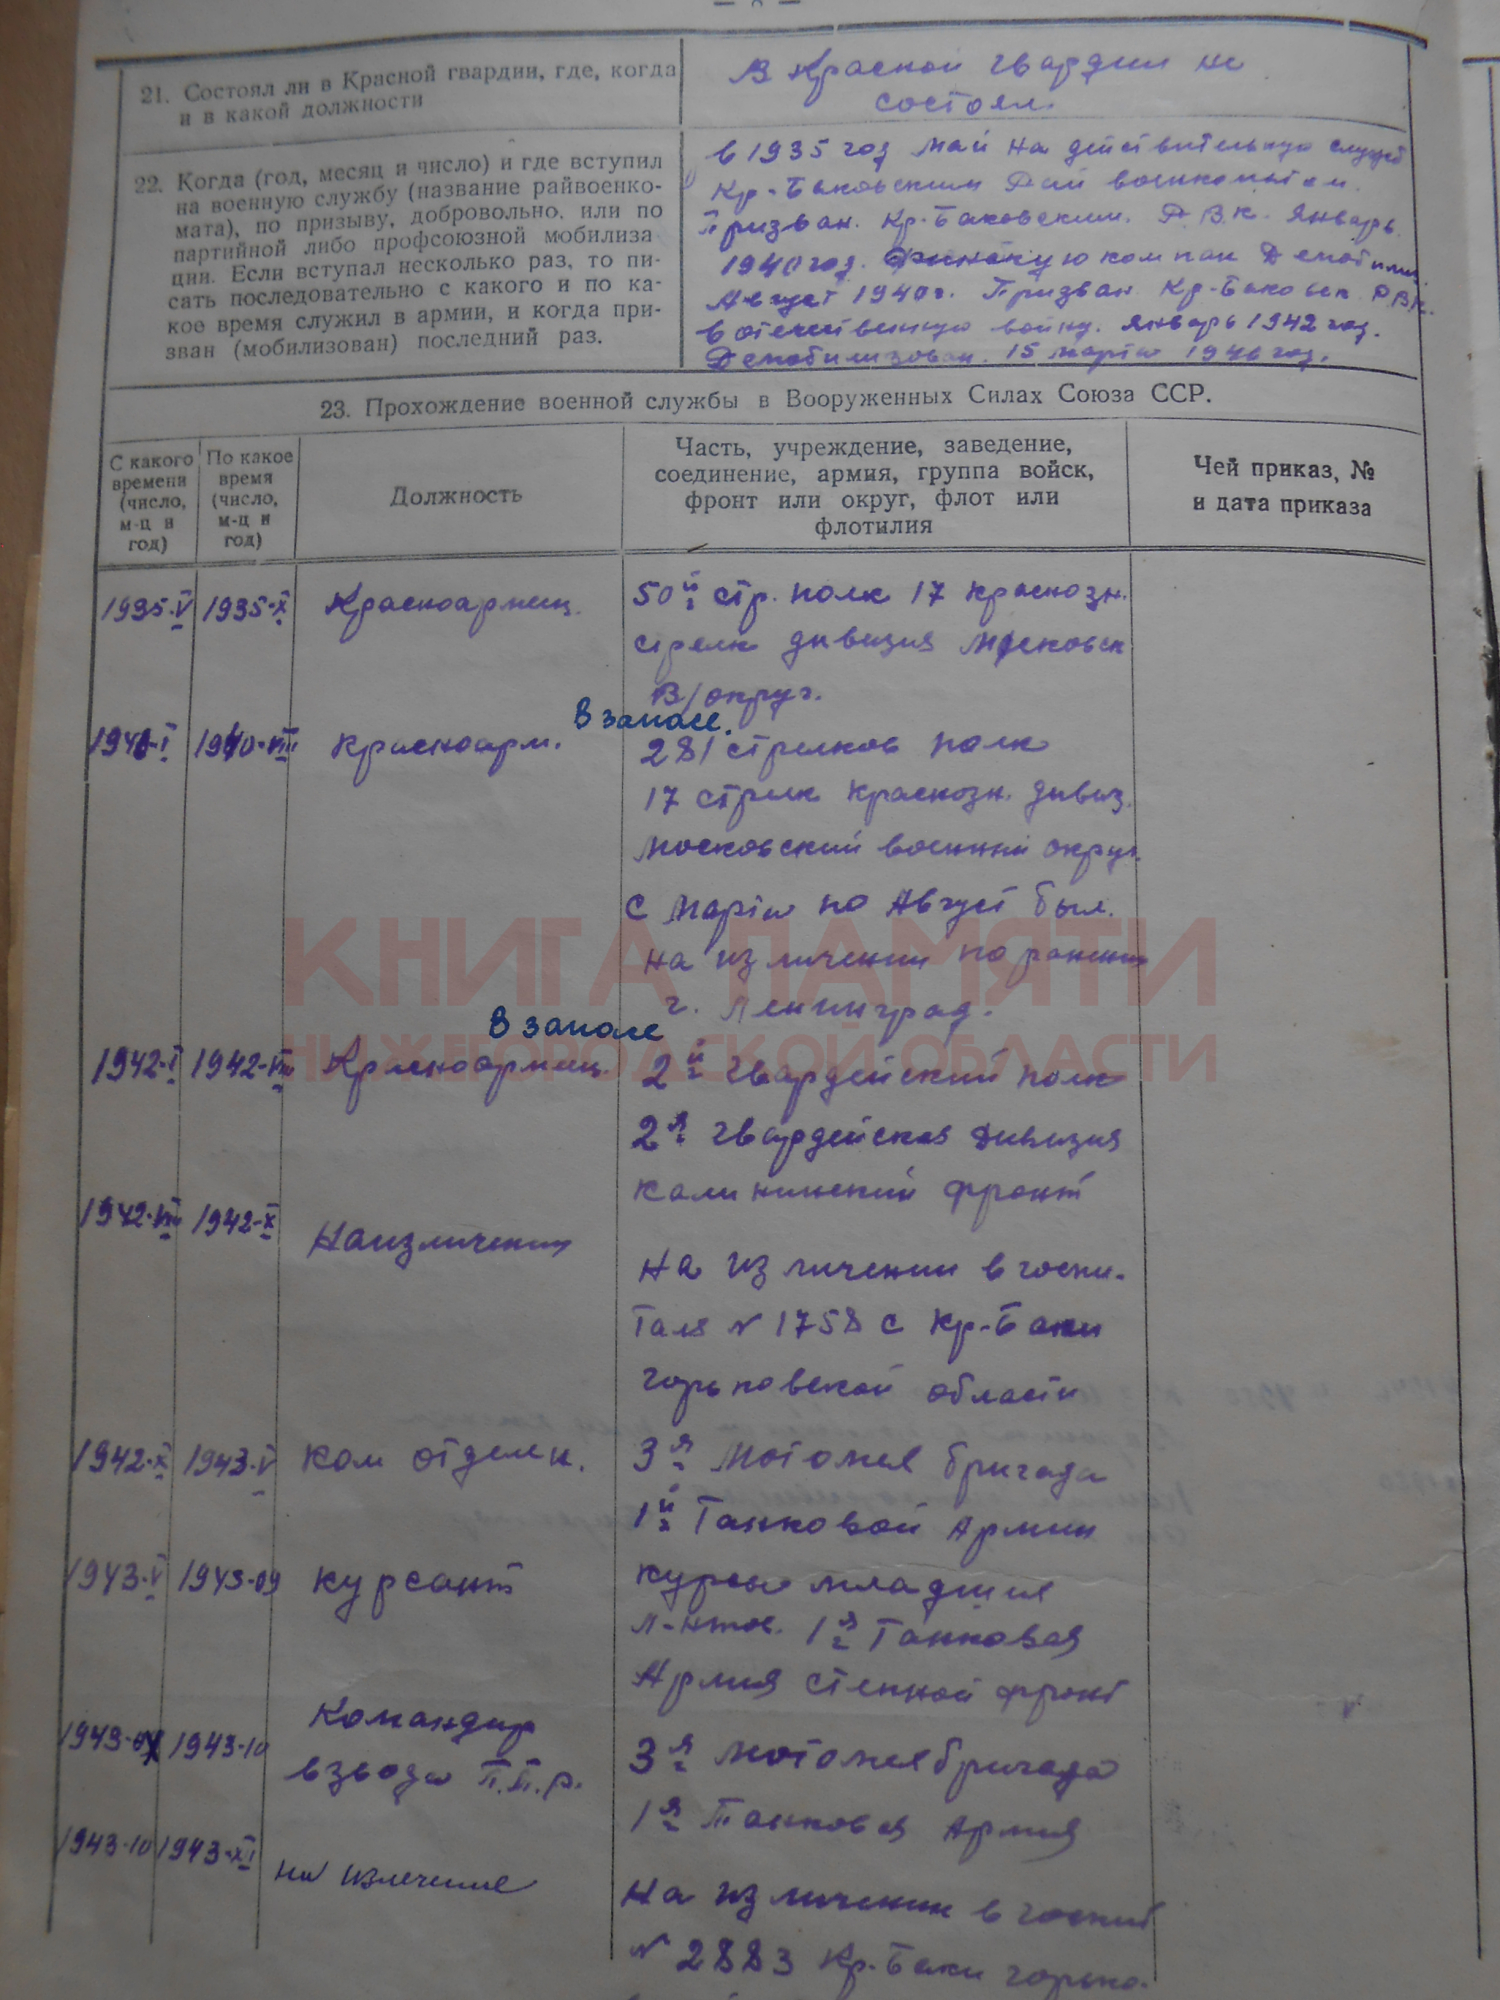 21. Состоял ли в Красной гвардии, где, когда
и в какой должности
В Красной гвардии не
состоял.
22. Когда (год, месяц и число) и где вступил
на военную службу (название райвоенко-
мата), по призыву, добровольно, или по
партийной либо профсоюзной мобилиза
ции. Если вступал несколько раз, то пи-
сать последовательно с какого и по ка-
кое время служил в армии, и когда при-
зван (мобилизован) последний раз.
в 1935 год май на действительную служб
Кр-Баковским Рай военкоматом.
Призван. Кр-Баковским. Р.В.К. Январь
1940 год. Финскую компан Демобилиз
Август 1940 г. Призван Кр-Баковск РВК.
в отечественную войну. январь 1942 год.
Демобилизован. 15 марта 1946 год.
23. Прохождение военной службы в Вооруженных Силах Союза ССР.
С какого времени (число, м-ц и год)
По какое время (число, м-ц и год)
Должность
Часть, учреждение, заведение,
соединение, армия, группа войск,
фронт или округ, флот или
флотилия
Чей приказ, №
и дата приказа
1935-V 1935-X Красноармец. 50й стр. полк 17 Краснозн.
стрелк дивизия Московск
В/округ.
В запасе.
1940-I 1940-VIII красноарм. 281 стрелков полк
17 стрелк Краснозн. дивиз.
Московский военный округ.
С марта по Август был.
на изличении по ранению
г. Ленинград.
В запасе
1942-I 1942-VIII Красноармец. 2й гвардейский полк
2я гвардейская Дивизия
Калининский фронт
1942-VIII 1942-X Наизличении
на изличении в госпи-
таля № 1758 с Кр-Баки
горьковской области
1942-X 1943-V Ком отделен. 3я Мотомех бригада
1й Танковой Армии
1943-V 1943-09 курсант курсы младших
л-нтов. 1я Танковая
Армия степной фронт
1943-09 1943-10 Командир
взвода П.Т.р. 3я мотомехбригада
1я Танковая Армия
1943-10 1943-XI на излечение
на изличении в госпит
№ 2883 Кр-Баки горько.
КНИГА ПАМЯТИ
НИЖЕГОРОДСКОЙ ОБЛАСТИ